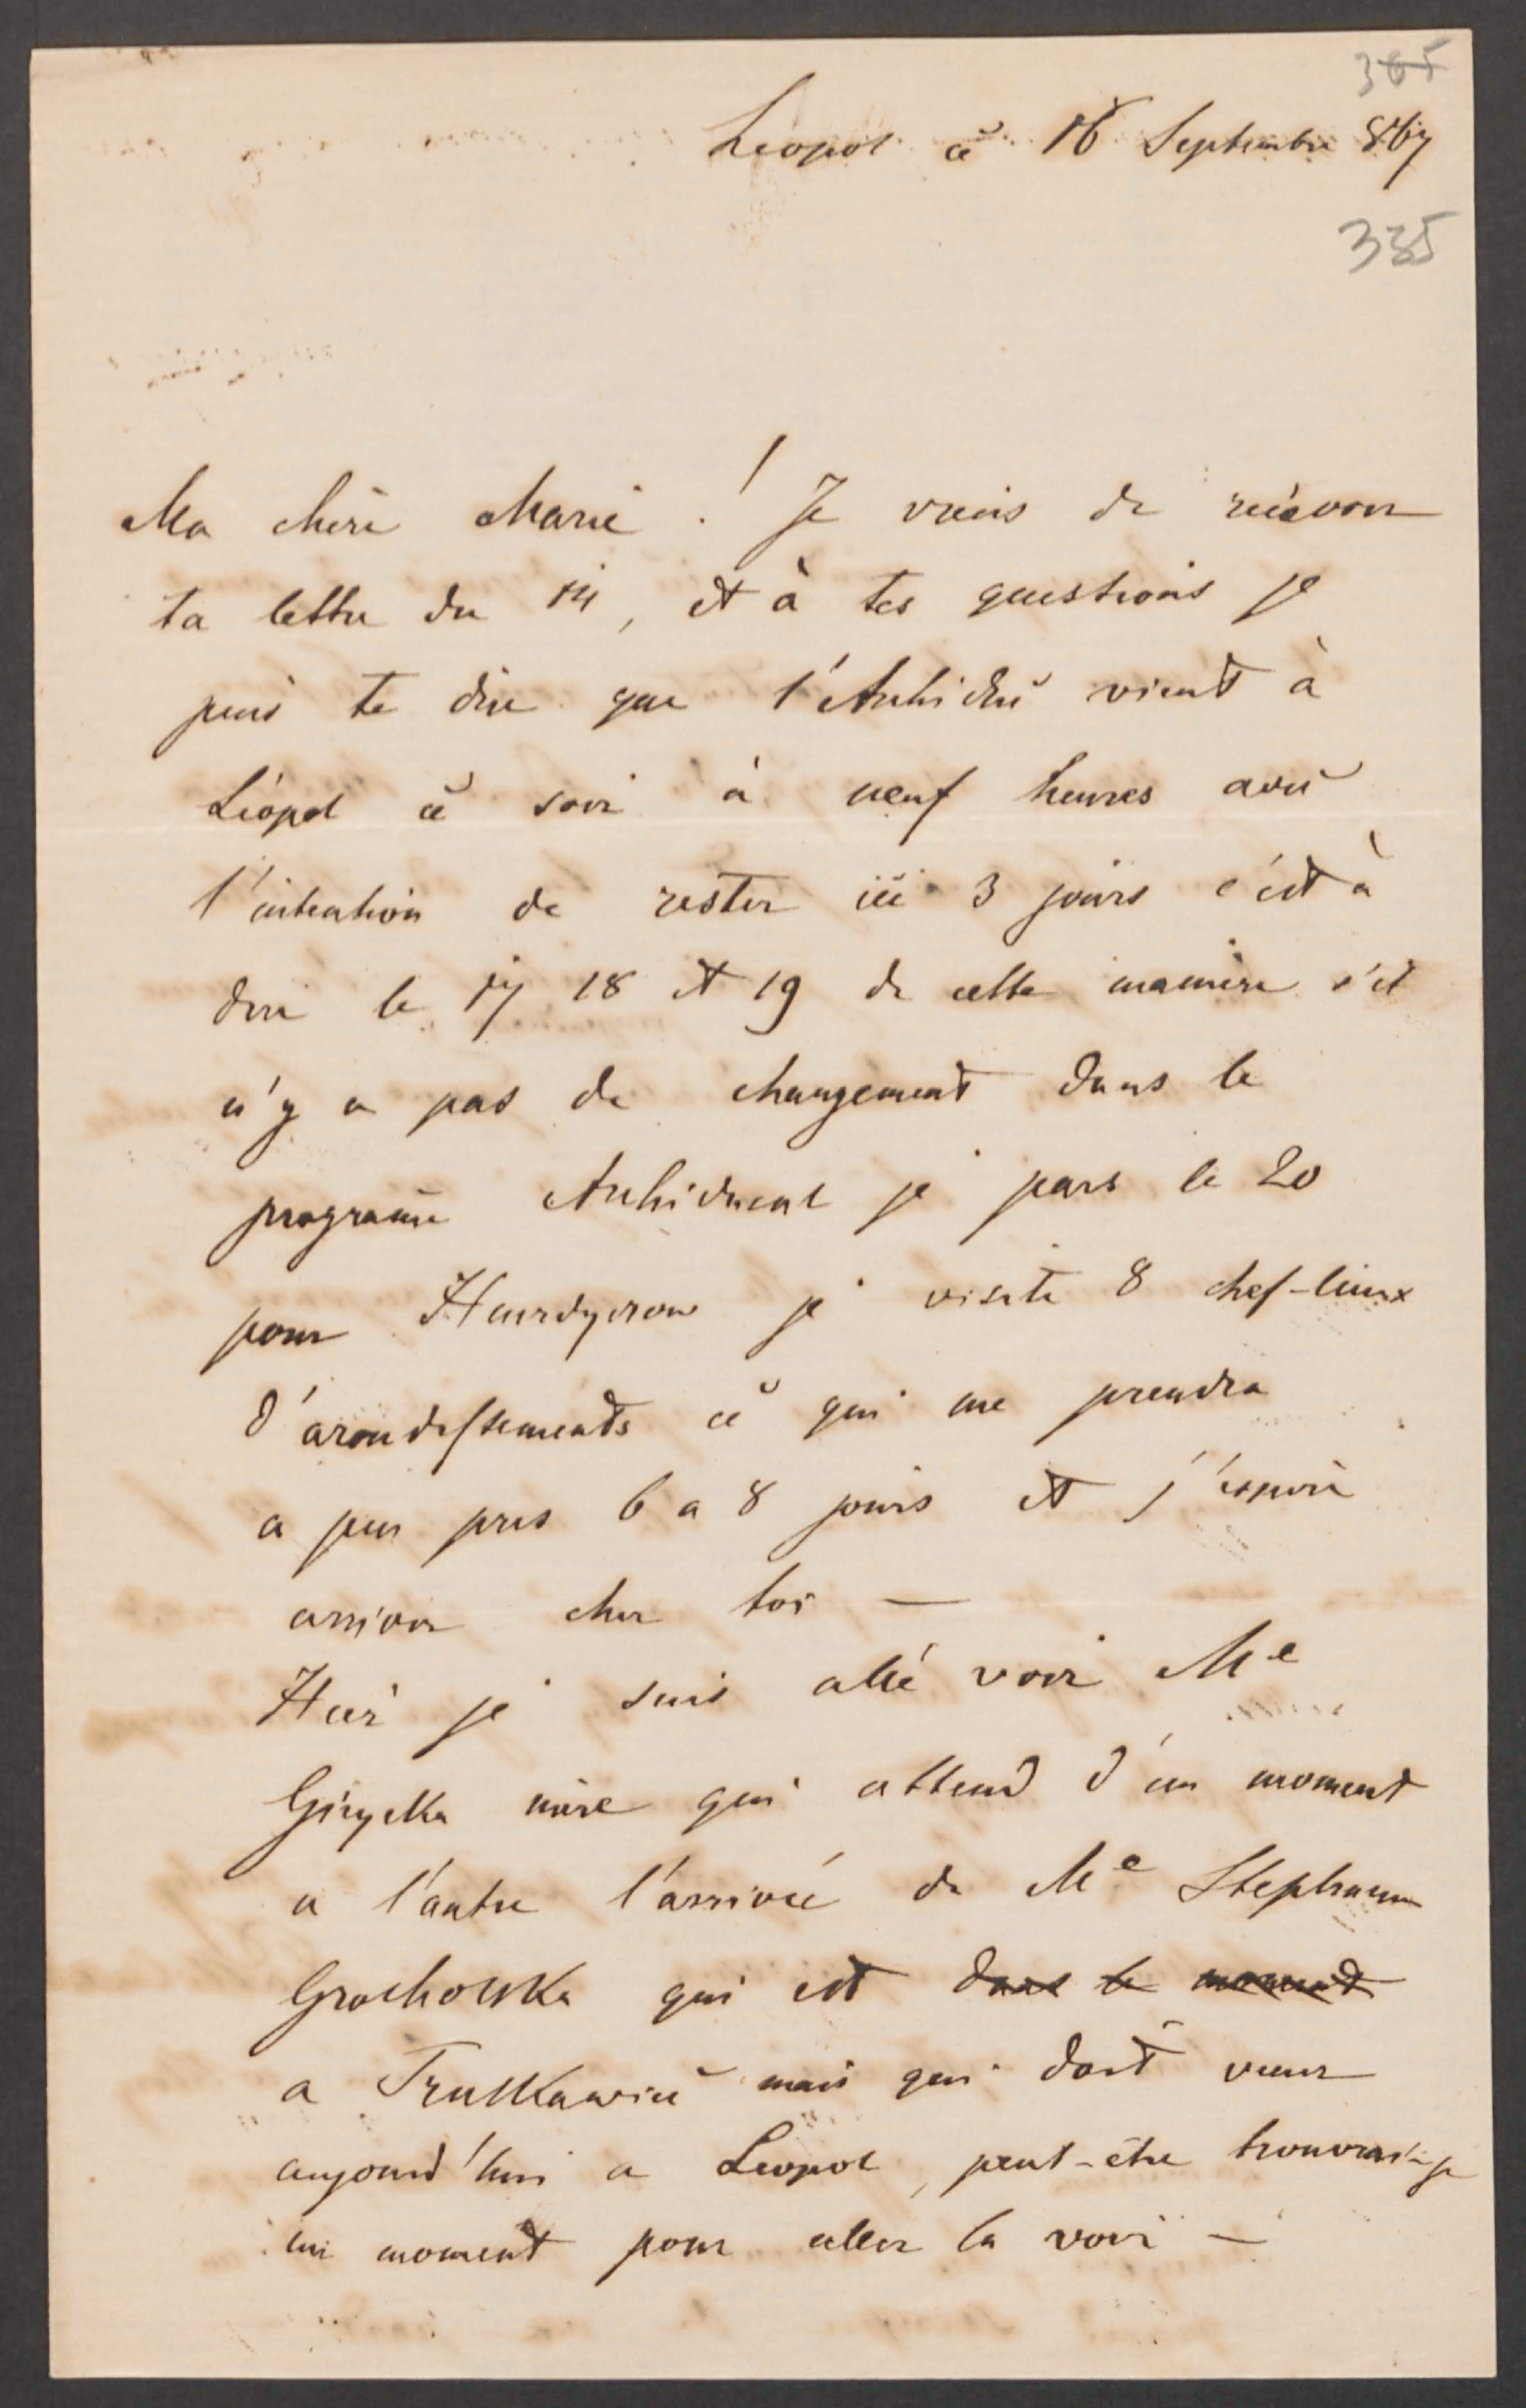 365
Leopol ce 16 Septembre 867
335
Ma chère Marie ! Je viens de recevoir
ta lettre du 14, et à tes questions je
puis te dire que l'Archiduc vient à
Léopol ce soir à neuf heures avec
l'intention de rester ici 3 jours c'est à
dire le 17 18 et 19 de cette manière s'il
n'y a pas de changement dans le
programe Archiducal je pars le 20
pour je visite 8 chef-lieux
d'arondissements ce qui me prendra
a peu pres 6 a 8 jours et j'espère
arriver chez toi —
Hier je suis allé voir Me
mère qui attend d'un moment
a l'autre l'arrivée de Me Stephanie
Grocholska qui est dans le moment
a Truskawiec mais qui doit venir
aujourd'hui a Leopol, peut-etre trouverai-je
un moment pour aller la voir —